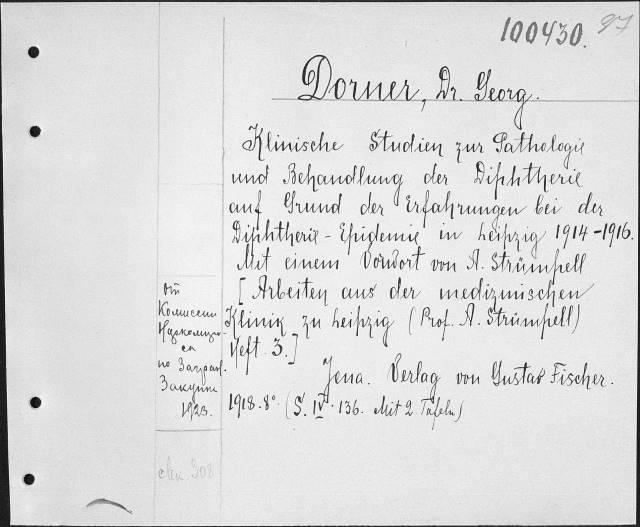 100430. 97
Dorner, Dr. Georg.
Klinische Studien zur Pathologie
und Behandlung der Diphtherie
auf Grund der Erfahrungen bei der
Diphtherie-Epidemie in Leipzig 1914-1916.
Mit einem Vorwort von A. Strümpell
[Arbeiten aus der medizinischen
Klinik zu Leipzig (Prof. A. Strümpell)
Heft 3.]
Jena. Verlag von Gustav Fischer.
1918. 8° (S. IV. 136. Mit 2 Tafeln)
От
Комиссии
по Заграи.
Закупке
1923.
308